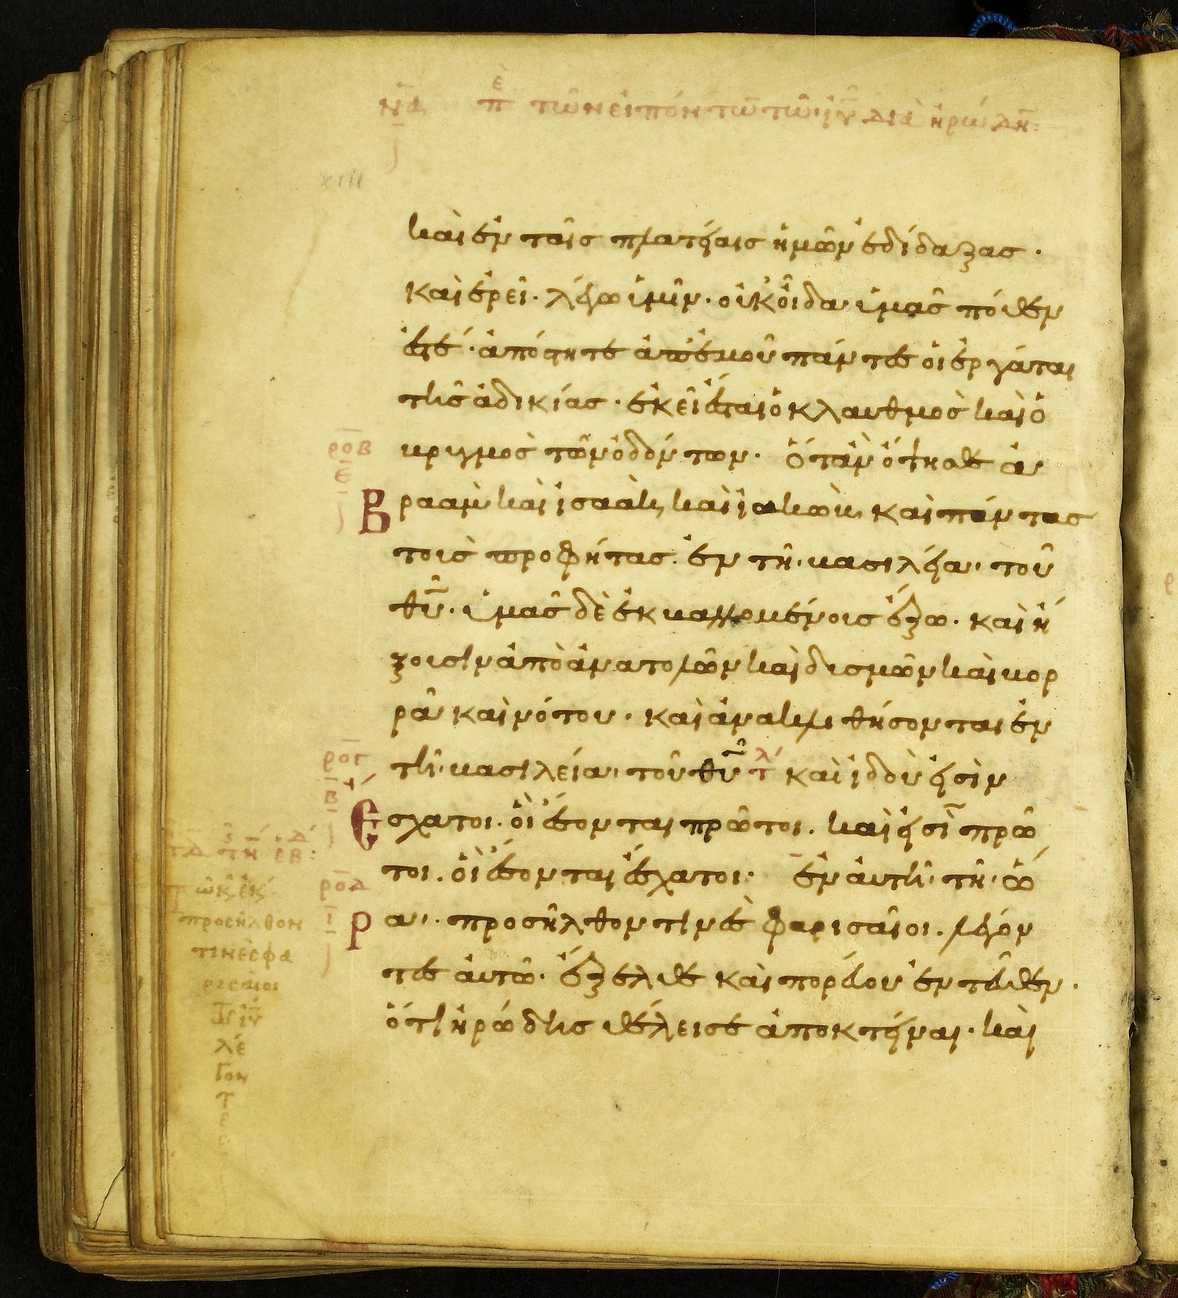 ν̅δ̅ π̅ὲ τῶν εἰπόντω̅ τῶ ἰ̅υ̅ διὰ ἡρώδη̅:
XIII
καὶ ἐν ταῖς πλατείαις ἡμῶν ἐδίδαξας·
καὶ ἐρεῖ· λέγω ὑμῖν· οὐκ οἶδα ὑμᾶς πόθεν
ἐστέ· ἀπόστητε ἀπ' ἐμοῦ πάντες οἱ ἐργάται
τῆς ἀδικίας· ἐκεῖ ἔσται ὁ κλαυθμὸς καὶ ὁ
ρ̅ο̅β̅ βρυγμὸς τῶν ὀδόντων· ὅταν ὄψησθε ἀ
ε̅
Βραὰμ καὶ ἰσαὰκ καὶ ἰακὼβ καὶ πάντας
τοὺς προφήτας· ἐν τῇ βασιλεία τοῦ
θ̅υ̅· ὑμᾶς δὲ ἐκβαλλομένους ἔξω· καὶ ἥ
ξουσιν ἀπὸ ἀνατολῶν καὶ δυσμῶν καὶ βορ
ρᾶ καὶ νότου· καὶ ἀνακλιθήσονται ἐν
ρ̅ο̅γ̅ τῆ βασιλεία τοῦ θ̅υ̅ τ̅λ καὶ ἰδοὺ εἰσὶν
β̅
Ἐσχατοι· οἳ ἔσονται πρῶτοι· καὶ εἰσὶ πρῶ
ρ̅ο̅δ̅ τοι· οἳ ἔσονται ἔσχατοι· ἐν αὐτῆ τῆ ὥ
ι̅
Ρα· προσῆλθον τινὲς φαρισαῖοι· λέγον
τες αὐτῶ· ἔξελθε καὶ πορεύου ἐντεῦθεν·
ὅτι ἡρώδης θέλει σὲ ἀποκτεῖναι· καὶ
προσῆλθον
τινὲς φα
ρισαῖοι
τ̅ω̅ ἰ̅υ̅
λέ
γον
τ
ε
ς